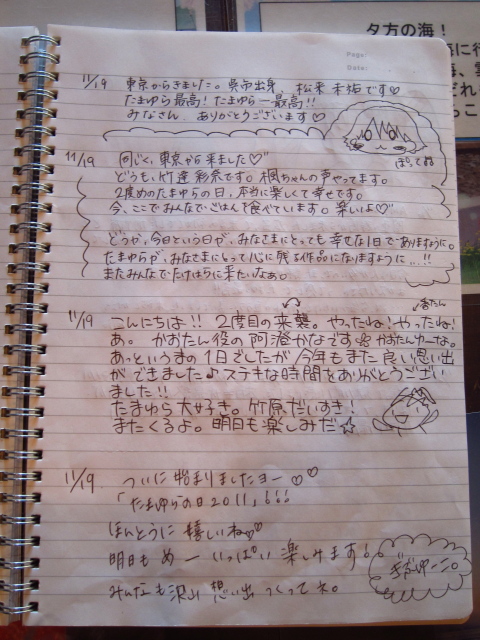 夕方の海！
に行
海、
だれ
こ
Page:
Date:
11/19 東京からきました。呉市出身 松来未祐です♡
たまゆら最高！たまゆら一最高！！
みなさん ありがとうございます♡
ぽって
11/19 同じく、東京から来ました♡
どうも、竹達彩奈です。楓ちゃんの声やってます。
2度めのたまゆらの日、本当に楽しくて幸せです。
今、ここでみんなでごはんを食べています。楽しいよ♡
どうか、今日という日が、みなさまにとっても幸せな1日でありますように。
たまゆらが、みなさまにとって心に残る作品になりますように…!!
またみんなでたけはらに来たいなぁ。
11/19 こんにちは！！2度目の来襲。やったね！やったね！
香たん
あ。かおたん役の阿澄かなです。かおたんやーな。
あっというまの1日でしたが今年もまた良い思い出
ができました♪ステキな時間をありがとうござい
ました！！
たまゆら大好き。竹原だいすき！
またくるよ。明日も楽しみだ☆
11/19. ついに始まりましたヨー♡♡
「たまゆらの日2011」!!!
ほんとうに嬉しいね♡♡
明日もめーいっぱい楽しみます!!
みんなも沢山想い出つくってネ。